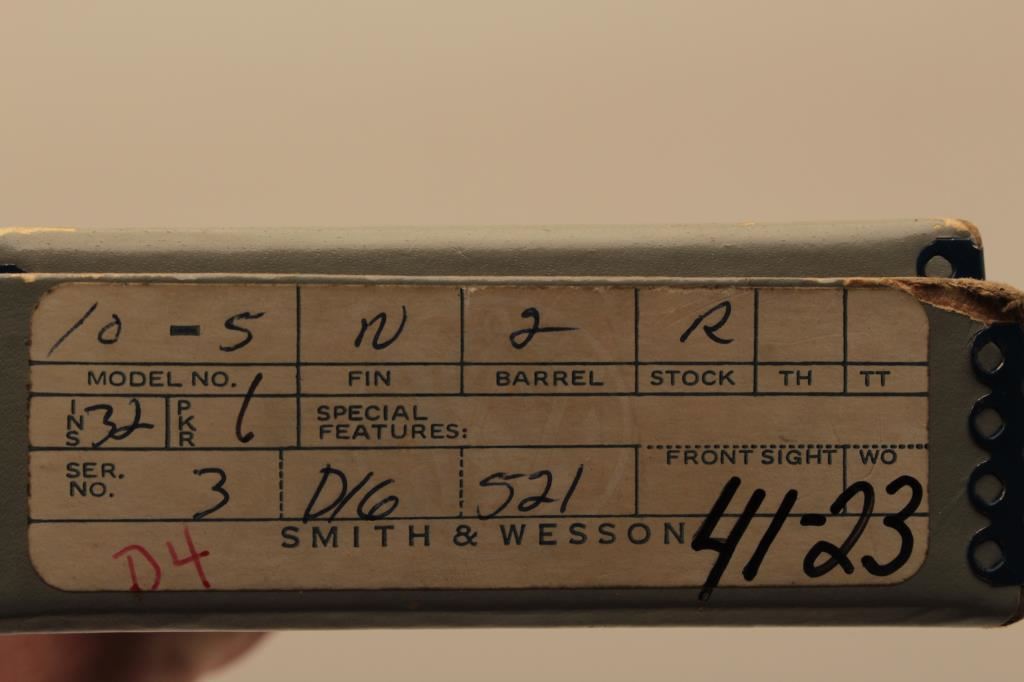 10 - 5 N 2 R
MODEL NO. FIN BARREL STOCK TH TT
INS 32 PKR 6 SPECIAL FEATURES:
SER. NO. 3 D16 521 FRONT SIGHT WO
SMITH & WESSON 41-23
D4